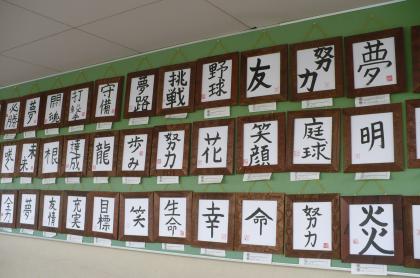 必勝 夢 守備 夢路 挑戦 野球 友 努力 夢
未来 達成 龍 歩み 努力 花 笑顔 庭球 明
全力 夢 友 充実 目標 笑 生命 幸 命 努力 炎